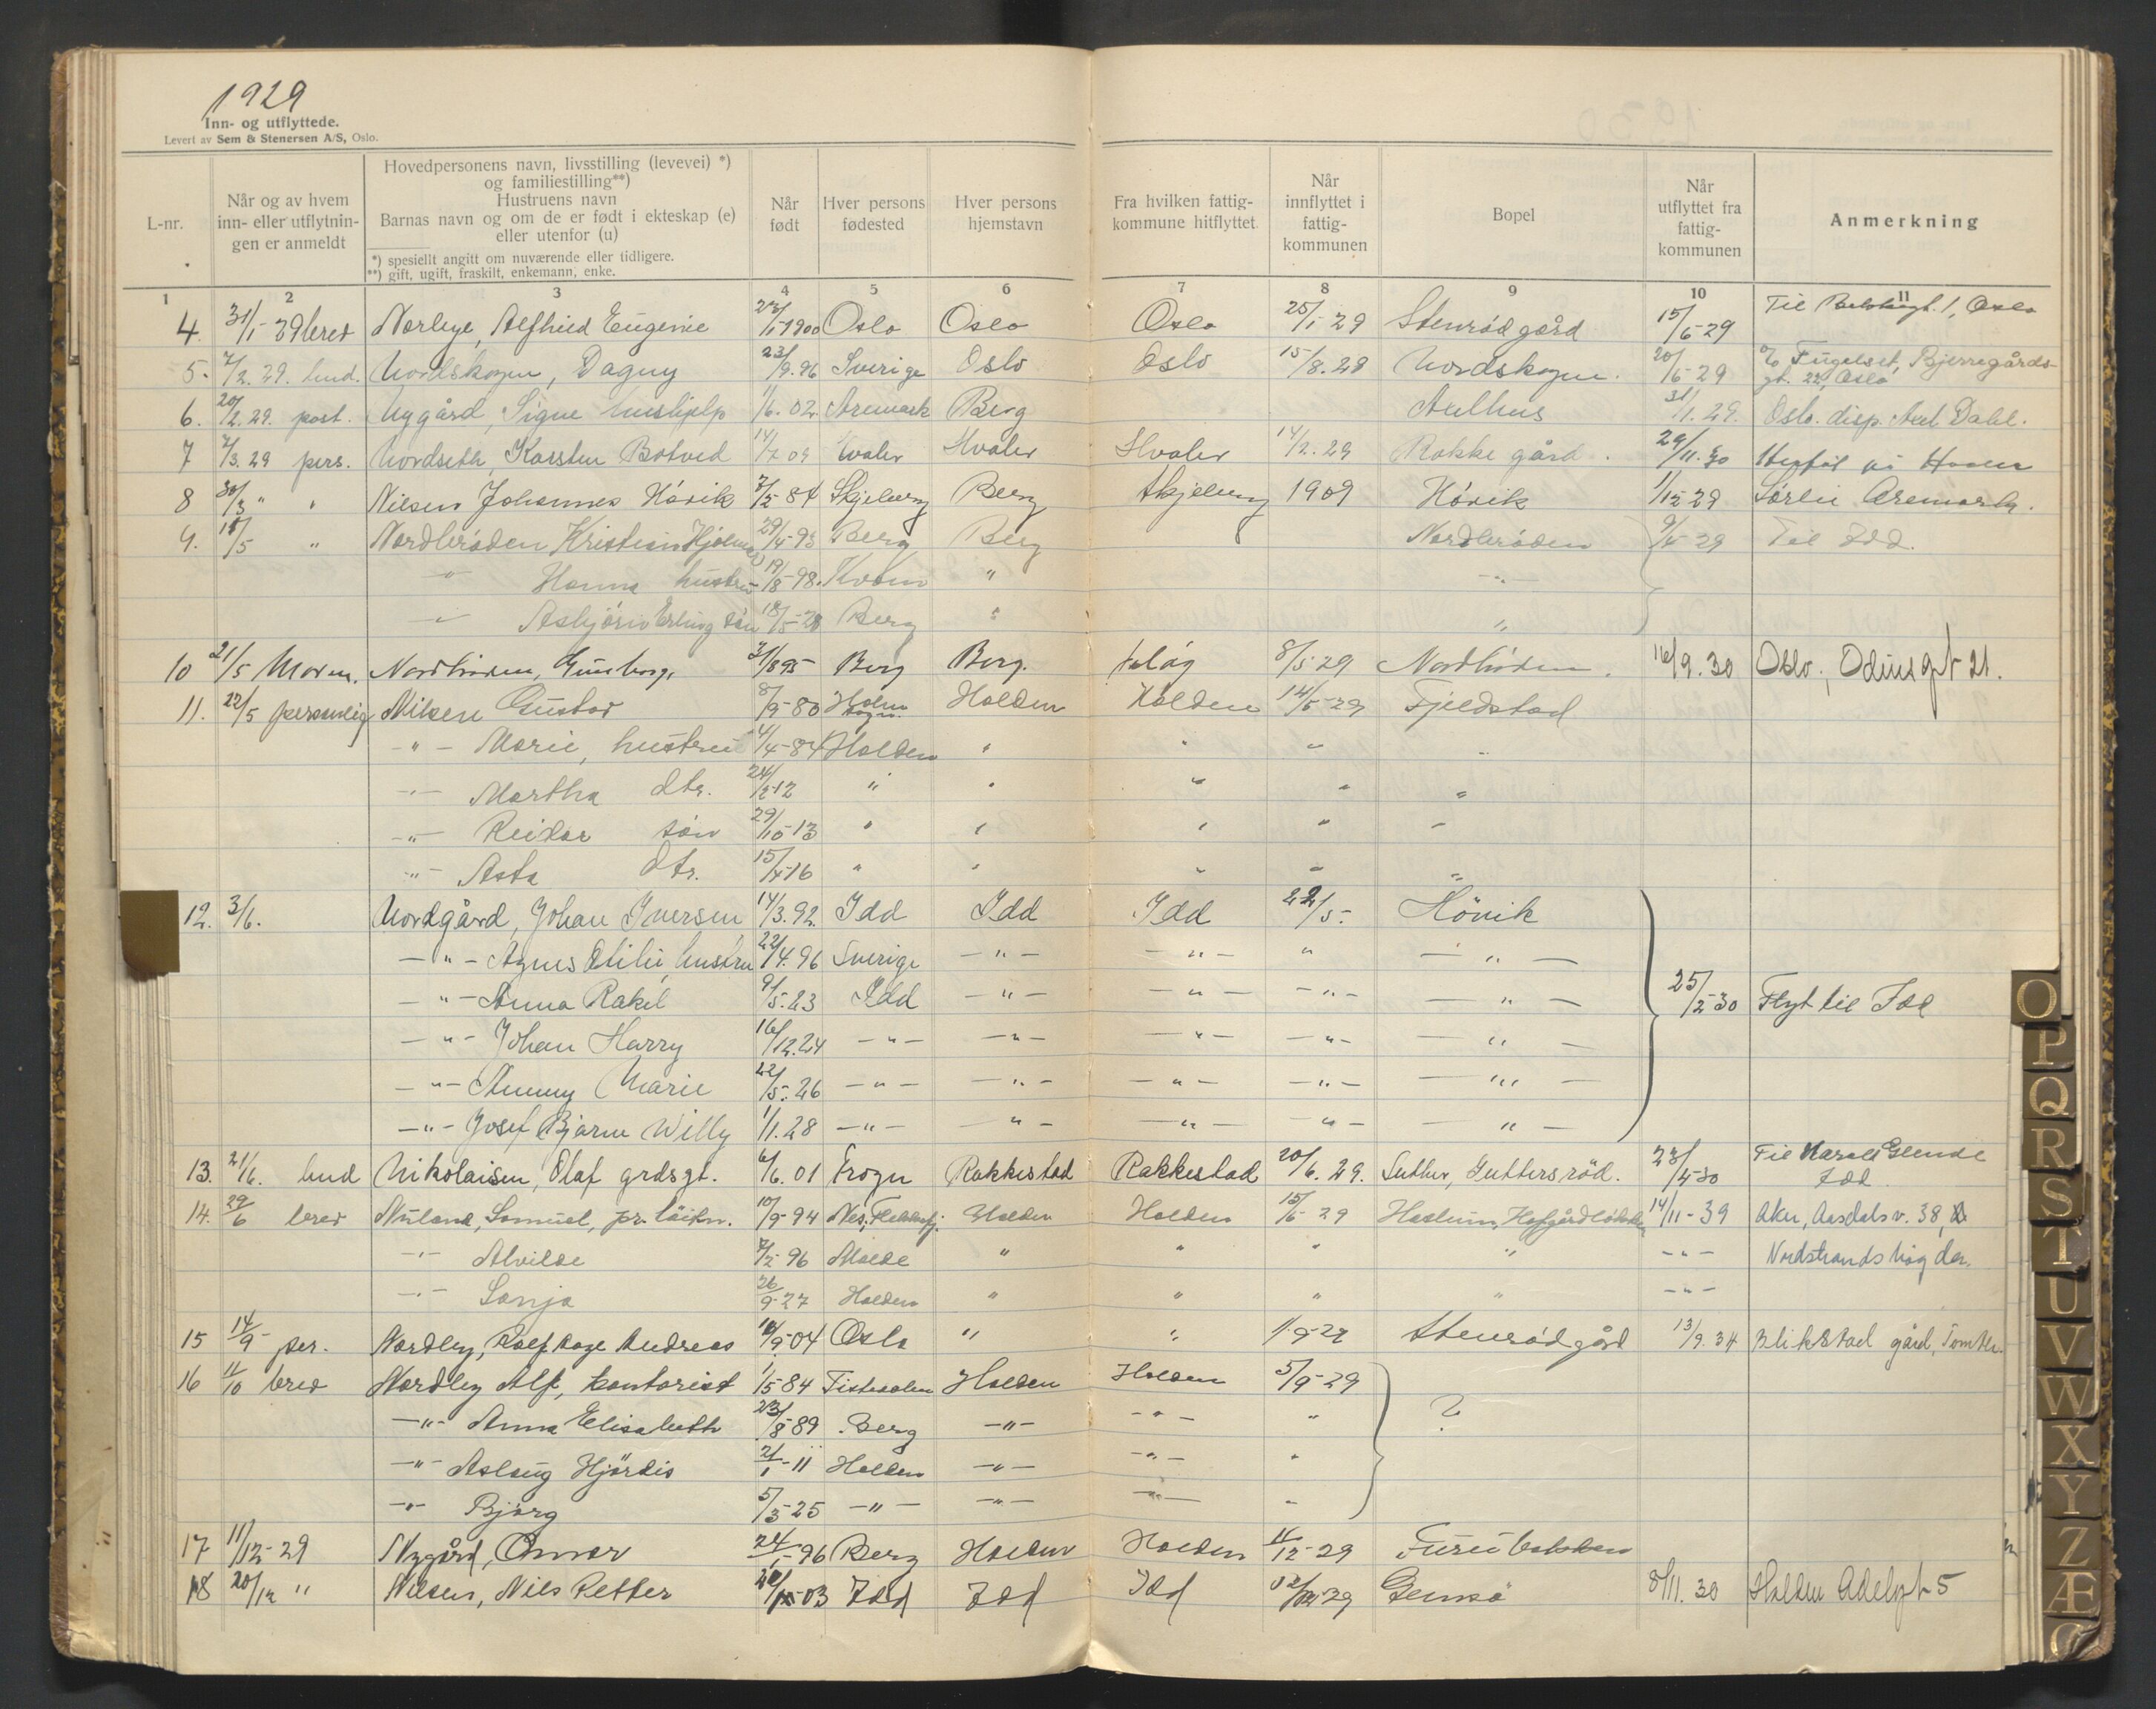 1929
Inn- og utflyttede.
Levert av Sem & Stenersen A/S, Oslo.
L-nr.
Når og av hvem inn- eller utflytnin- gen er anmeldt
Hovedpersonens navn, livsstilling (levevei) *) og familiestilling**) Hustruens navn Barnas navn og om de er født i ekteskap (e) eller utenfor (u)
*) spesielt angitt om nuværende eller tidligere.
**) gift, ugift, fraskilt, enkemann, enke.
Når født
Hver persons fødested
Hver persons hjemstavn
Fra hvilken fattig- kommune hitflyttet
Når innflyttet i fattig- kommunen
Bopel
Når utflyttet fra fattig- kommunen
Anmerkning
1 2 3 4 5 6 7 8 9 10 11
4. 31/1-29 brev Norbye, Alfhild Eugenie /1-1900 Oslo Oslo Oslo 25/1-29 Stenrød gård 15/6-29 Til 1, Oslo
5. 7/2.29. bud. Nordskogen, Dagny 23/9.96 Sverige Oslo Oslo 15/8.28 Nordskogen. 20/6-29 c/o Fugelset, Bjerregårds-
gt. 22, Oslo
6. 20/2.29. post. Nygård, Signe hushjelp 11/6.02 Aremark Berg Aulhus 31/1.29. Oslo. disp. Axel Dahl.
7 7/3.29 pers. Nordseth, Karsten Botved 14/7 09 Hvaler Hvaler Hvaler 14/2.29 Rokke gård. 29/11.30 Hvaler
8 30/3 " " Nilsen Johannes Hövik 7/5-84 Skjeberg Berg Skjeberg 1909 Hövik 1/12 29 Sørlie Aremark.
9. 18/5 " Nordbrøden Kristian Hjalmar 29/4-93 Berg Berg Nordbrøden 9/4-29 Til Idd.
-"- Hanna hustru 19/8-98. " -"-
-"- Asbjörn Erling sön 18/5-28 Berg " "
10 21/5 Moren. Nordbröden, Gunborg, 31/8 95 Berg Berg. 8/5-29 Nordbröden. 16/9.30 Oslo, Odinsgt 21.
11. 22/5 personlig Nilsen Gustav 8/9-80 Holm sogn. Halden Halden 14/5-29 Fjeldstad
-"- Marie, hustru /4-84 Halden " " " "
-"- Martha dtr. 24/2-12 " " " " "
-"- Reidar sön 29/10-13 " " " " "
-"- Asta dtr. 15/4-16 " " " " "
12. 3/6. Nordgård, Johan Iversen 14/3.92. Idd Idd Idd 22/5. Hövik
-"- Agnes Otilie, hustru 22/4.96 Sverige -"- -"- " -"-
-"- Anna Rakel 9/5.23 Idd -"- -"- -"- -"- 25/2-30 Flyt til Idd
-"- Johan Harry 16/12.24 -"- -"- -"- -"- -"-
-"- Anny Marie 22/5.26 -"- -"- -"- -"- -"-
-"- Josef Bjarne Willy 1/1.28 -"- "- -"- -"- -"-
13. 21/6. bud Nikolaisen, Olaf grdsgt. 6/6.01 Frogn Rakkestad Rakkestad 20/6.29. Guthus, Guttersröd. 23/4-30 Til Harald Glende
Idd
14. 29/6 brev Nuland, Samuel, 10/9-94 Nes, Flekkefj. Halden Halden 15/6-29 Haslum, 14/11-39 Aker, Aasdals v. 38,
-"- Alvilde 7/2-96 Molde " " " " -"- Nordstrandshögda.
-"- Sonja 26/9-27 Halden " " " " -"-
15 14/9 per. Nordby, Rolf Aage Andreas /9-04 Oslo " " 1/9-29 Stenrødgård 13/9.34 Blikstad gård, Tomter.
16 11/10 brev Nordby Alf, kontorist 1/5 84 Tistedalen Halden Halden 5/9-29
-"- Anna Elisabeth 23/8-89 Berg -"- -"- " ?
-"- Aslaug Hjördis 2/1-11 Halden -"- -"- "
-"- Björg 5/3-25 -"- -"- -"- "
17 11/12-29 Nygård, Omar 24/1-96 Berg Halden Halden 11/12-29 Furubakken
18 20/12 " Nilsen, Nils Petter 03 Idd Idd Idd 29 8/11.30 Halden Adelgt 5
O
P
Q
R
S
T
U
V
W
X
Y
Z
Æ